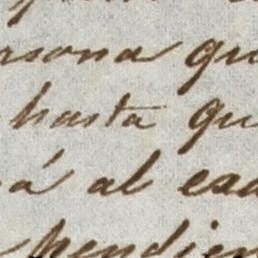 rsona qu
hasta qu
á al exa
pendien